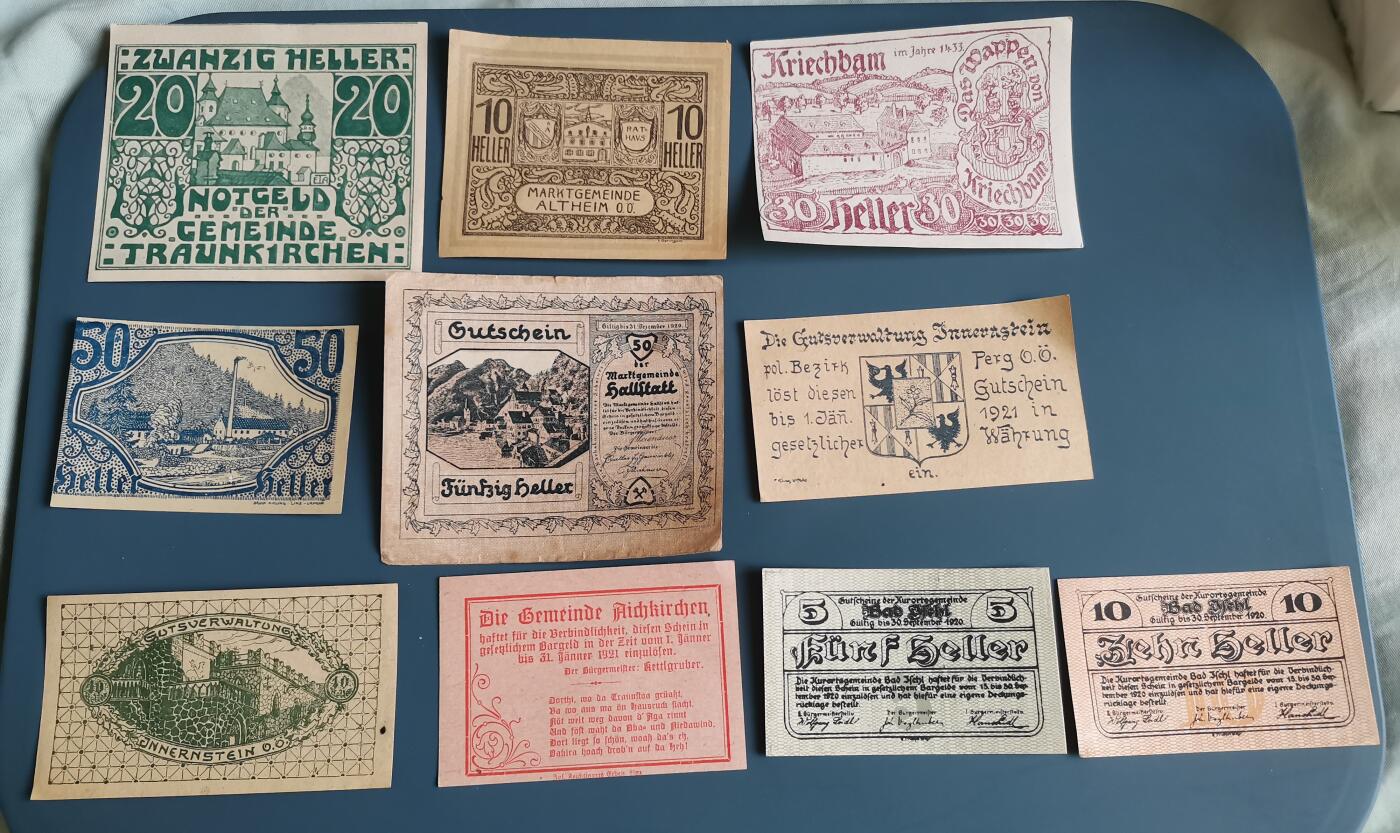 ZWANZIG HELLER
20 20
NOTGELD
DER
GEMEINDE
TRAUNKIRCHEN
10 10
HELLER HELLER
RAT-
HAUS
MARKTGEMEINDE
ALTHEIM O.Ö.
Kriechbam im Jahre 1433.
Das Wappen von
Kriechbam
30 Heller 30
30 30 30
50 50
Heller Heller
Gutschein
Fünfzig Heller
Giltig bis 31. Dezember 1920.
50
der
Marktgemeinde
Hallstatt
Die Gutsverwaltung Innernstein
pol. Bezirk Perg O.Ö.
löst diesen Gutschein
bis 1. Jän. 1921 in
gesetzlicher Währung
ein.
GUTSVERWALTUNG
40 40
INNERNSTEIN O.Ö.
Die Gemeinde Aichkirchen
haftet für die Verbindlichkeit, diesen Schein in
gesetzlichem Bargeld in der Zeit vom 1. Jänner
bis 31. Jänner 1921 einzulösen.
Der Bürgermeister: Kettlgruber.
Dorthi, wo da Traunstoa grüaßt,
Da wo ma ön Hausruck siacht,
Nöt weit weg davon d' Aga rinnt
Und fost waht da Oba- und Niedawind,
Dort liegt so schön, woaß da's eh,
Dahira hoach drob'n auf da Heh!
5 Gutscheine der Kurortsgemeinde 5
Bad Ischl
Gültig bis 30. September 1920.
Fünf Heller
Die Kurortsgemeinde Bad Ischl haftet für die Verbindlich-
keit diesen Schein in gesetzlichem Bargelde vom 15. bis 30. Sep-
tember 1920 einzulösen und hat hiefür eine eigene Deckungs-
rücklage bestellt.
Der Bürgermeister:
10 Gutscheine der Kurortsgemeinde 10
Bad Ischl
Gültig bis 30. September 1920.
Zehn Heller
Die Kurortsgemeinde Bad Ischl haftet für die Verbindlich-
keit diesen Schein in gesetzlichem Bargelde vom 15. bis 30. Sep-
tember 1920 einzulösen und hat hiefür eine eigene Deckungs-
rücklage bestellt.
Der Bürgermeister: